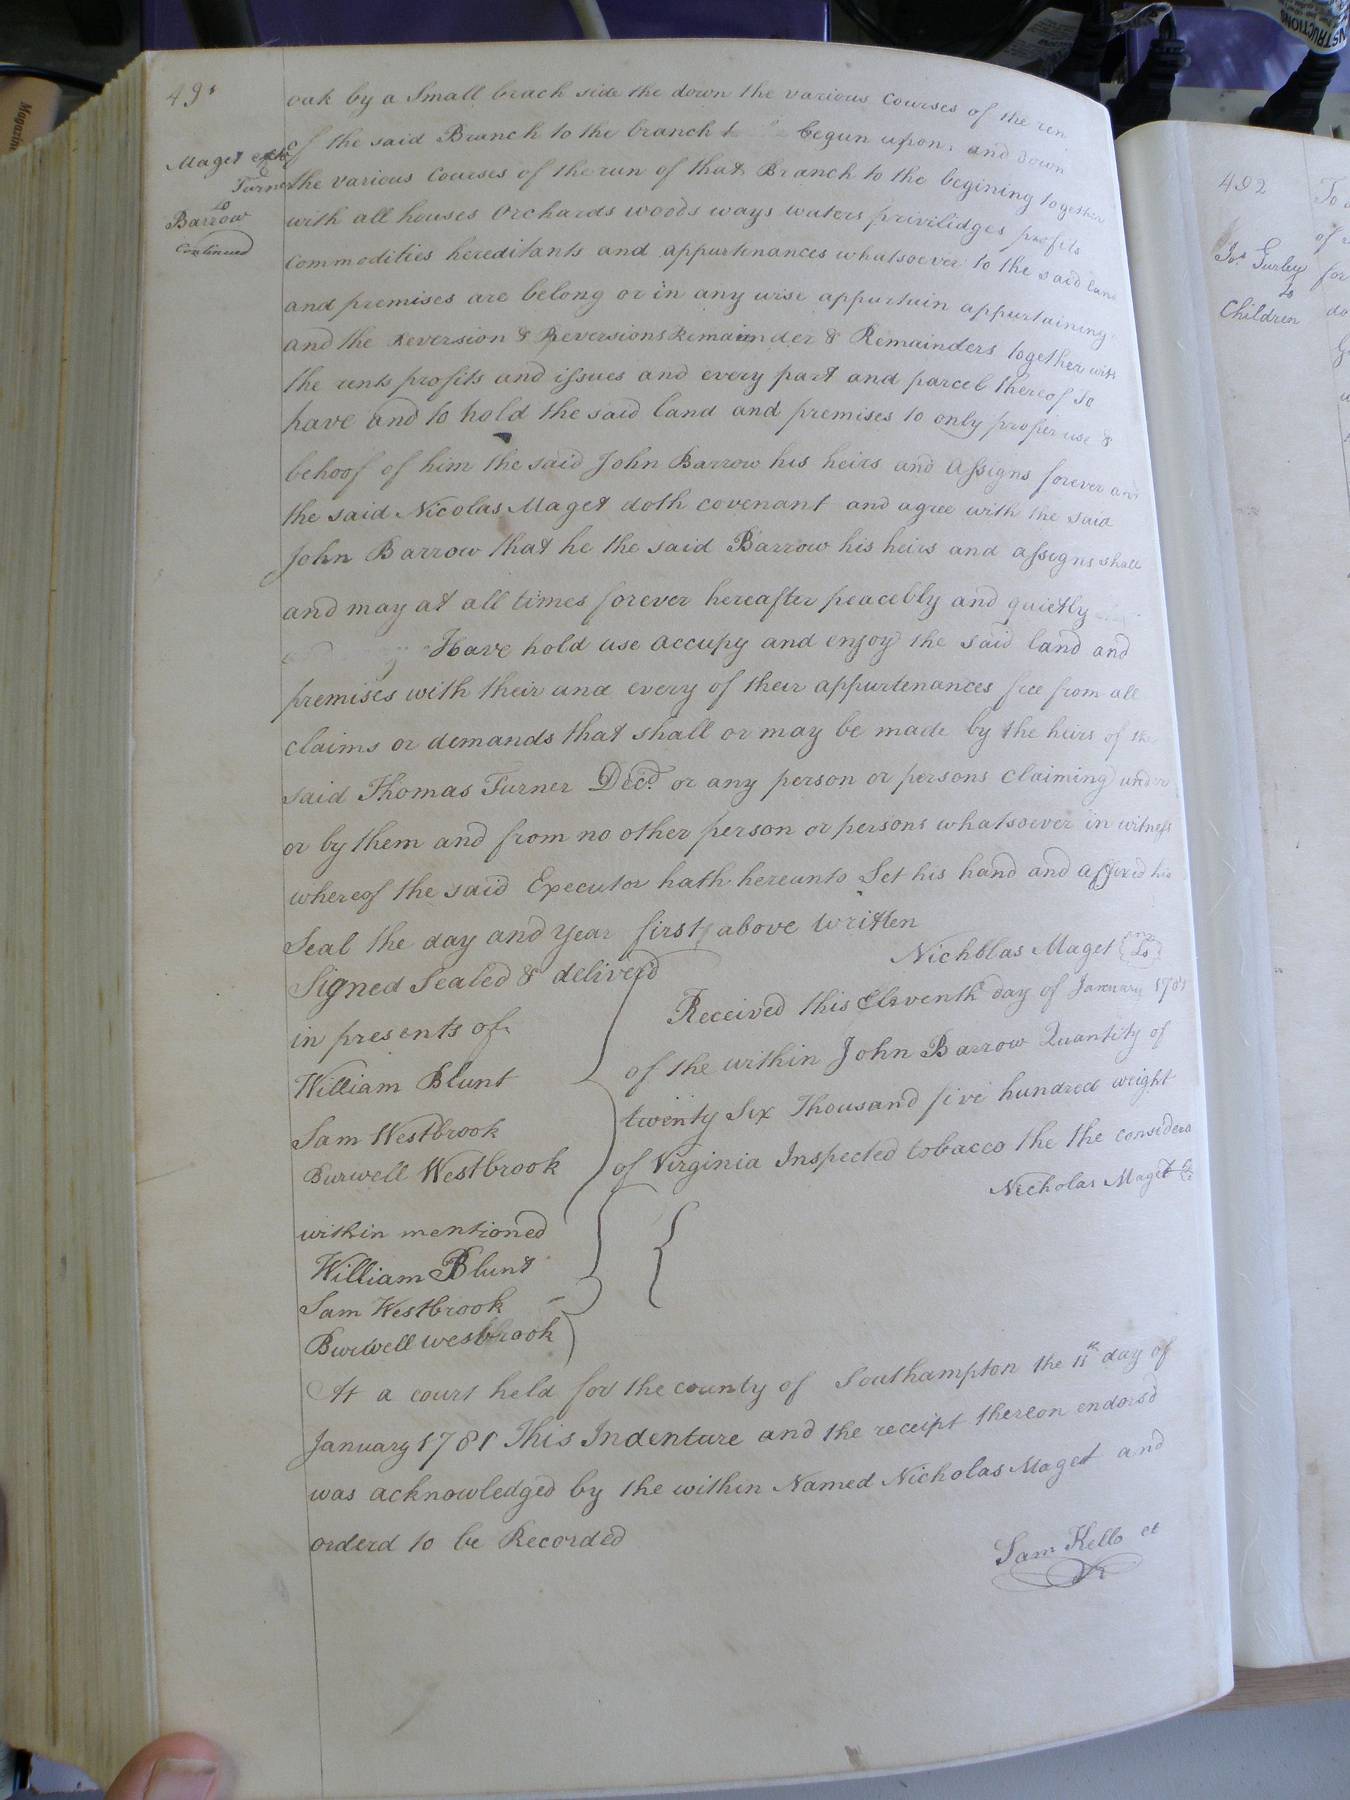 491
Maget exr of
Turner
to
Barrow
Continued
oak by a Small beach side the down the various Courses of the ren
of the said Branch to the branch begun upon, and down
the various Courses of the run of that Branch to the begining together
with all houses Orchards woods ways waters privilidges profits
Commodities hereditants and appurtenances whatsoever to the said land
and premises are belong or in any wise appurtain appurtaining
and the Reversion & Reversions Remainder & Remainders together with
the rents profits and issues and every part and parcel thereof To
have and to hold the said land and premises to only proper use &
behoof of him the said John Barrow his heirs and Assigns forever and
the said Nicolas Maget doth covenant and agree with the said
John Barrow that he the said Barrow his heirs and assigns shall
and may at all times forever hereafter peacebly and quietly
Have hold use occupy and enjoy the said land and
premises with their and every of their appurtenances free from all
claims or demands that shall or may be made by the heirs of the
said Thomas Turner Decd. or any person or persons Claiming under
or by them and from no other person or persons whatsoever in witness
whereof the said Executor hath hereunto Set his hand and affixed his
Seal the day and year first above written
Nicholas Maget Ls
Signed Sealed & deliverd
in presents of
William Blunt
Sam Westbrook
Burwell Westbrook
Received this Eleventh day of January 1781
of the within John Barrow Quantity of
twenty Six Thousand five hundred weight
of Virginia Inspected tobacco the the considera
Nicholas Maget
within mentioned
William Blunt
Sam Westbrook
Burwell wesbrook
At a court held for the county of Southampton the 11th day of
January 1781 This Indenture and the receipt thereon endorsd
was acknowledged by the within Named Nicholas Maget and
orderd to be Recorded
Sam Kello ct
492
Jos Gurley
to
Children
To
of
for
do
Magazine
INSTRUCTIONS